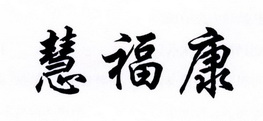 慧福康